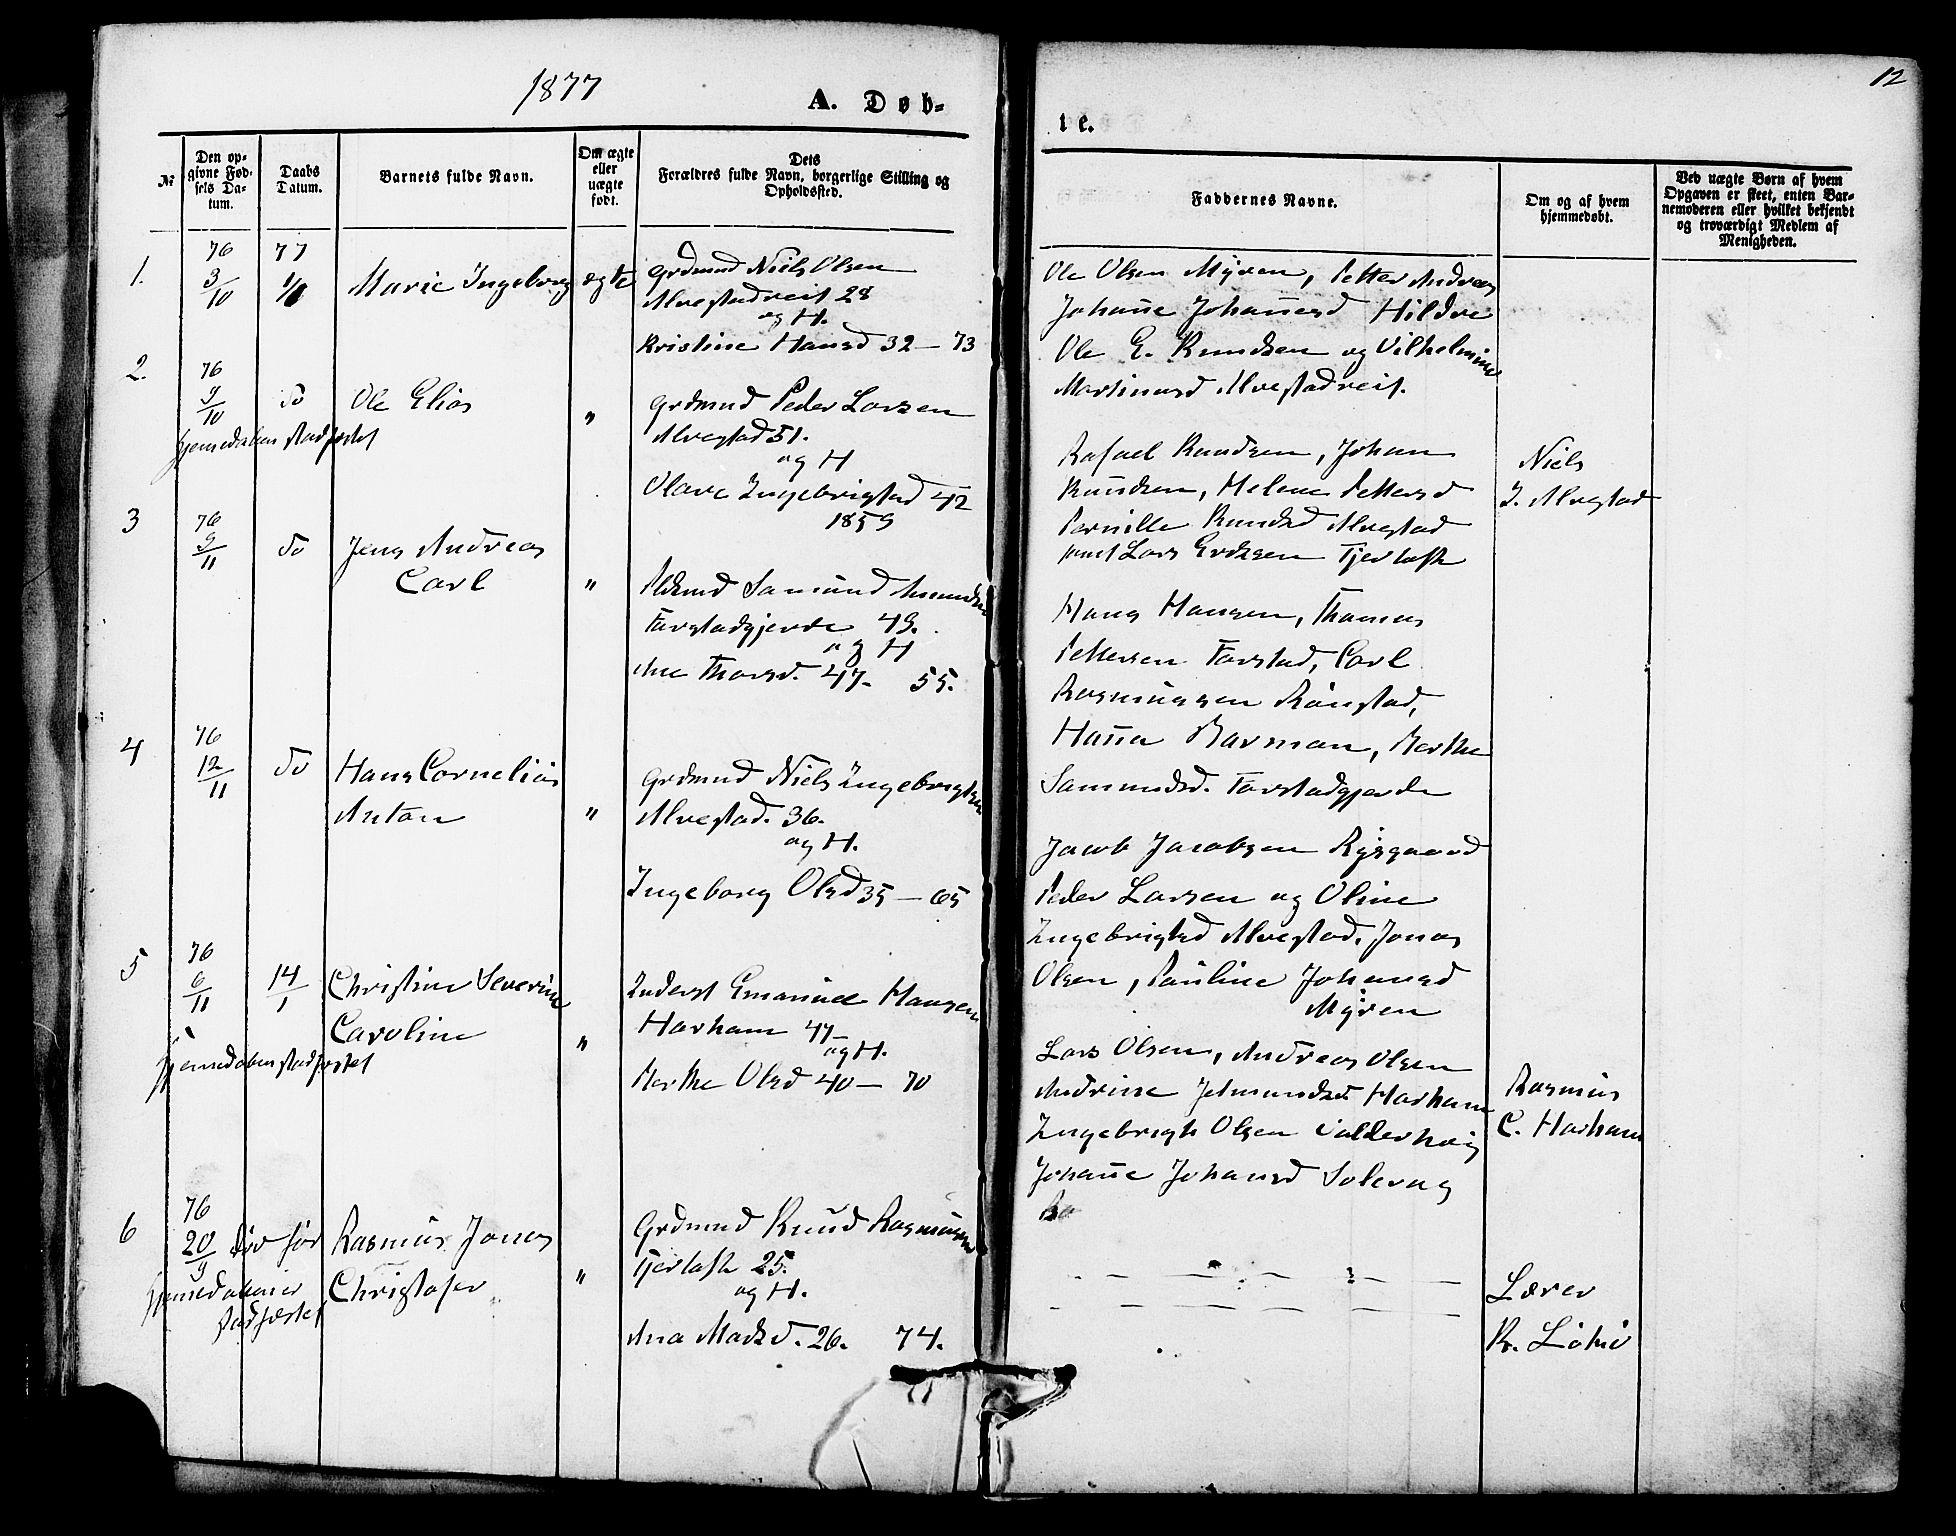 1877
A. Døb-
№
Den op-
givne Fød-
sels Da-
tum.
Daabs
Datum.
Barnets fulde Navn.
Om ægte
eller
uægte
født.
Dets
Forældres fulde Navn, borgerlige Stilling og
Opholdssted.
1.
76
3/10
77
1/1
Marie Ingeborg
ægte
Grdmnd Niels Olsen
Alvestadreit 28
og H.
Kristine Hansd 32 — 73
2.
76
9/10
do
Ole Elias
"
Grdmnd Peder Larsen
Alvestad 51.
og H
Olave Ingebrigtsd 42
1859
hjemedaaben stadfæstet
3
76
9/11
do
Jens Andreas
Carl
"
Samund Amundsen
Farstadgjerde 49.
og H
Ane Thorsd. 47- 55.
4
76
12/11
do
Hans Cornelius
Anton
"
Grdmnd Niels Ingebrigtsen
Alvestad. 36.
og H.
Ingeborg Olsd 35 — 65
5
76
6/11
14/1
Christine Severine
Caroline
"
Inderst Emanuel Hansen
Harham 47-
og H.
Berthe Olsd 40 — 70
hjemedaaben stadfæstet
6
76
20/9
død før
Rasmus Jonas
Christofer
"
Grdmnd Knud Rasmussen
Fjertoft 25.
og H.
Ana Madsd. 26. 74.
hjemedaaben
stadfæstet
12
te.
Faddernes Navne.
Om og af hvem
hjemmedøbt.
Ved uægte Børn af hvem
Opgaven er skeet, enten Bar-
nemoderen eller hvilket bekjendt
og troværdigt Medlem af
Menigheden.
Ole Olsen Myren, Petter Andreas
Johanne Johannesd Hildre
Ole E. Knudsen og Vilhelmine
Martinusd Alvestadreit.
Rafael Knudsen, Johan
Knudsen, Helene Pettersd
Pernille Knudsd Alvestad
samt Lars Eriksen Fjertoft
Niels
I. Alvestad
Hans Hansen, Thomas
Pettersen Farstad, Carl
Rasmussen Rønstad,
Hanna Barman, Berthe
Samundsd. Farstadgjerde
Jacob Jacobsen Rysgaard
Peder Larsen og Oline
Ingebrigtsd Alvestad. Jonas
Olsen, Pauline Johansd
Myren
Lars Olsen, Andreas Olsen
Andrine Jetmundsd Harham
Ingebrigt Olsen Valderhaug
Johanne Johansd Solevag
Rasmus
C. Harham
Ra
Lærer
K.